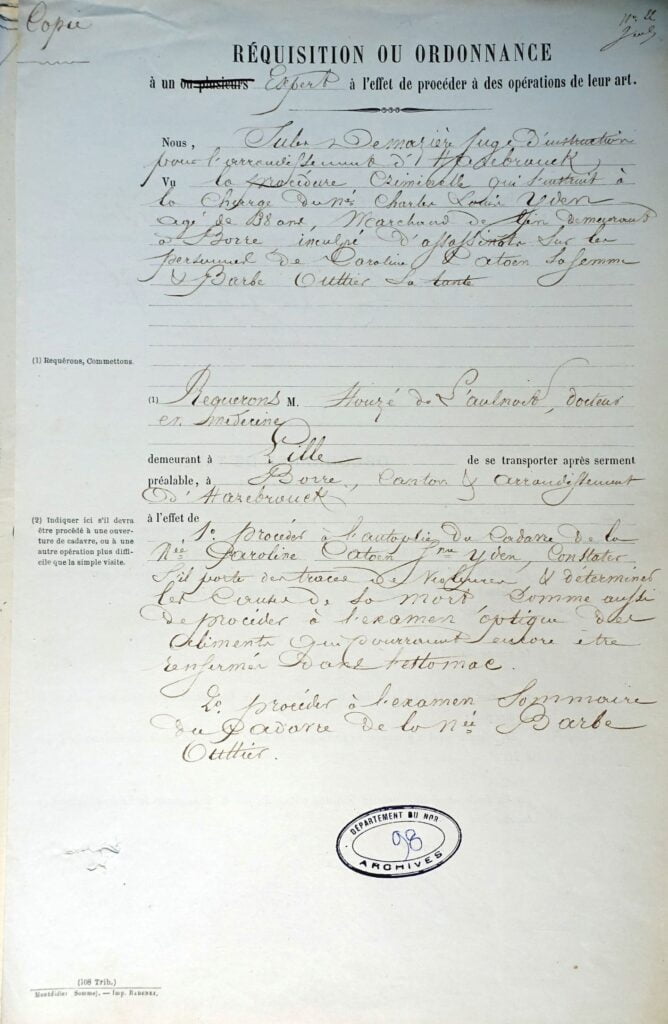 Copie
RÉQUISITION OU ORDONNANCE
à un ou plusieurs Expert à l'effet de procéder à des opérations de leur art.
Nous, Jules Demazière Juge d'instruction
pour l'arrondissement d'Hazebrouck,
Vu la procédure Criminelle qui s'instruit à
la charge du né Charles Louis Yden
agé de 38 ans, Marchand de lin demeurant
à Borre, inculpé d'assassinats sur les
personnes de Caroline Catoen sa femme
& Barbe Outtier sa tante
(1) Requérons, Commettons.
(1) Requerons M. Houzé de L'aulnoit, docteur
en médecine
demeurant à Lille de se transporter après serment
préalable, à Borre, Canton & arrondissement
d'Hazebrouck
(2) Indiquer ici s'il devra
être procédé à une ouver-
ture de cadavre, ou à une
autre opération plus diffi-
cile que la simple visite.
à l'effet de
1o procéder à l'autopsie du Cadavre de la
Née Caroline Catoen fme Yden, Constater
s'il porte des traces de & déterminer
les Causes de sa mort Comme aussi
de procéder à l'examen optique des
aliments qui pourraient encore être
renfermés dans l'estomac.
2o procéder à l'examen Sommaire
du Cadavre de la née Barbe
Outtier.
DÉPARTEMENT DU NOR
98
ARCHIVES
(108 Trib.)
Montdidier Somme). — Imp. RADENEZ,